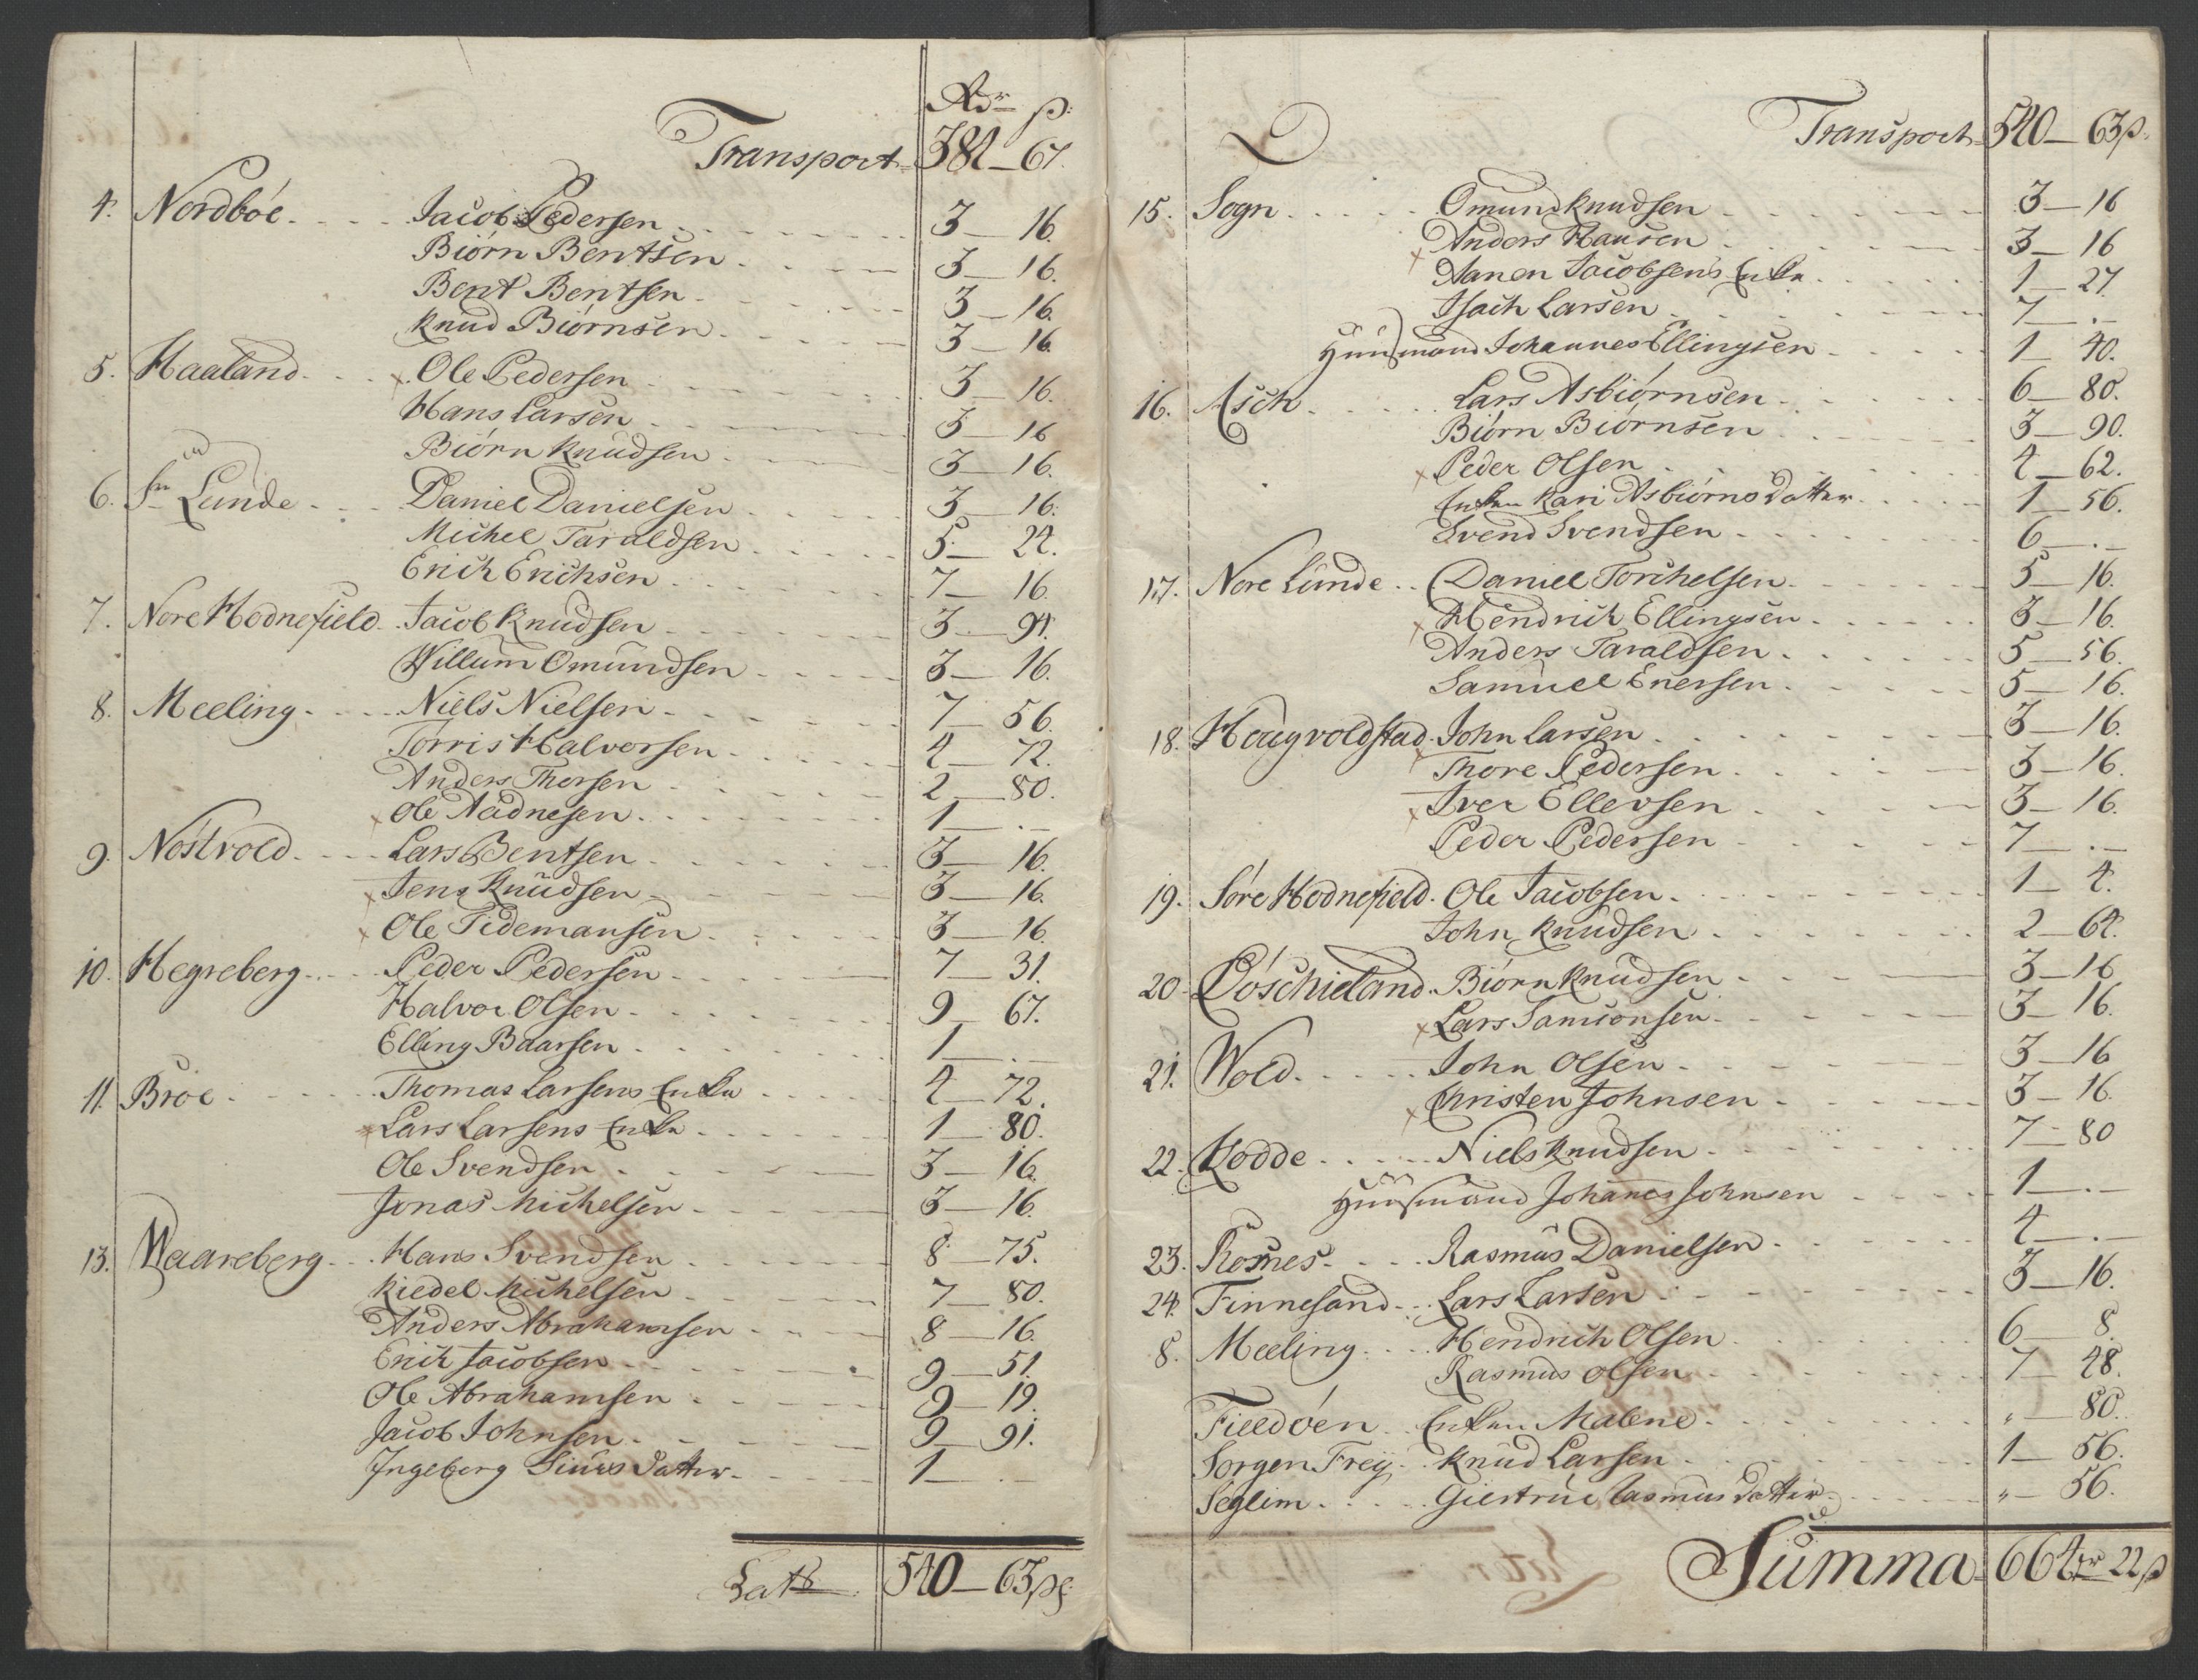 Rdr ß:
Transport 381 – 67.
4. Nordböe. Jacob Pedersen 3 – 16.
Biörn Bentsen 3 – 16.
Bent Bentsen 3 – 16.
Knud Biörnsen 3 – 16.
5. Haaland. × Ole Pedersen 3 – 16.
Hans Larsen 3 – 16
Biörn Knudsen 3 – 16.
6. Lunde Daniel Danielsen 3 – 16.
Michel Taraldsen 5 – 24.
Erich Erichsen 7 – 16.
7. Nore Hodnefield Jacob Knudsen 3 – 94.
Willum Omundsen 3 – 16.
8. Meeling Niels Nielsen 7 – 56.
Torris Halvorsen 4 – 72.
Anders Thorsen 2 – 80.
× Ole Aadnesen 1 – . –
9. Nöstvold Lars Bentsen 3 – 16.
× Jens Knudsen 3 – 16.
× Ole Tidemansen 3 – 16.
10. Hegreberg Peder Pedersen 7 – 31.
Halvor Olsen 9 – 67.
Elling Baarsen 1 – . –
11. Bröe Thomas Larsens Enke 4 – 72.
× Lars Larsens Enke 1 – 80.
Ole Svendsen 3 – 16.
Jonas Michelsen 3 – 16.
13. Waareberg Hans Svendsen 8 – 75.
Kiedel Michelsen 7 – 80.
Anders Abrahamsen 8 – 16.
Erich Jacobsen 9 – 51.
Ole Abrahamsen 9 – 19.
Jacob Johnsen 9 – 91.
Ingeborg Siurs Datter 1 – . –
Lat 540 – 63 ß
Transport 540 – 63 ß
15. Sogn Omund Knudsen 3 – 16
× Anders Hansen 3 – 16
Aanen Jacobsens Enke 1 – 27.
Isach Larsen 7 – . –
Huusmand Johannes Ellingsen 1 – 40.
16. Asch Lars Asbiörnsen 6 – 80.
Biörn Biörnsen 3 – 90.
× Peder Olsen 4 – 62.
Enken Kari Asbiörns Datter 1 – 56.
Svend Svendsen 6 – . –
17. Nore Lunde Daniel Torchelsen 5 – 16.
× Hendrich Ellingsen 3 – 16.
Anders Taraldsen 5 – 56.
Samuel Enersen 5 – 16.
18. Hougvoldstad John Larsen 3 – 16.
× Thore Pedersen 3 – 16.
× Iver Ellevsen 3 – 16.
Peder Pedersen 7 – . –
19. Söre Hodnefield Ole Jacobsen 1 – 4.
John Knudsen 2 – 64.
20. Döschieland Biörn Knudsen 3 – 16
× Lars Samsonsen 3 – 16.
21. Wold John Olsen 3 – 16
× Christen Johnsen 3 – 16.
22. Hodde Niels Knudsen 7 – 80
Huusmand Johanes Johnsen 1 – . –
23. Rosnes Rasmus Danielsen 4 – . –
24. Finnesand Lars Larsen 3 – 16.
8. Meeling Hendrich Olsen 6 – 8.
Rasmus Olsen 7 – 48.
Fieldöen Enken Malene " – 80.
Sorgen Frey Knud Larsen 1 – 56.
Seglim Giertrue Rasmus Datter " – 56.
Summa 664 rr 22 ß